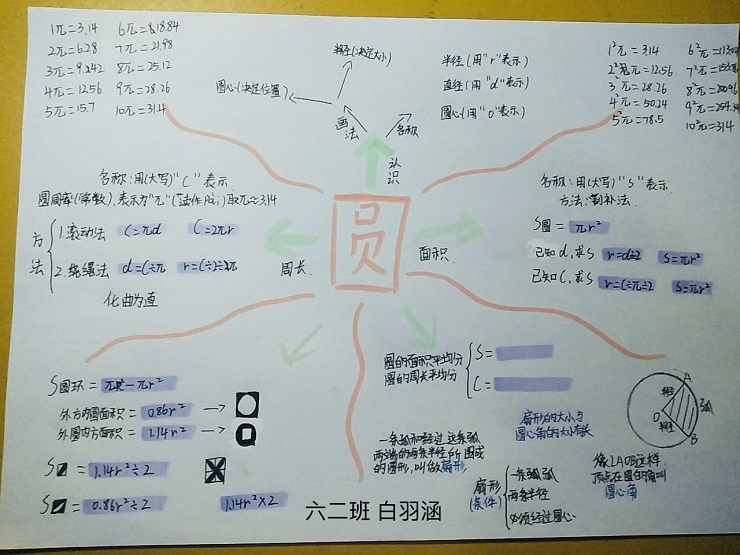 1π=3.14 6π=18.84
2π=6.28 7π=21.98
3π=9.242 8π=25.12
4π=12.56 9π=28.26
5π=15.7 10π=314
半径(决定大小)
圆心(决定位置)
画法
名称
认识
半径(用"r"表示)
直径(用"d"表示)
圆心(用"O"表示)
1²π=314 6²π=
2²π=12.56 7²π=
3²π=28.26 8²π=
4²π=50.24 9²π=
5²π=78.5 10²π=314
名称:用(大写)"C"表示
圆周率(常数).表示为"π"(读作Pai)取π≈3.14
方法
1.滚动法 C=πd C=2πr
2.绕绳法 d=C÷π r=C÷2π
化曲为直
周长
圆
面积
名称:用(大写)"S"表示
方法:割补法.
S圆=πr²
已知d,求S r=d÷2 S=πr²
已知C,求S r=C÷π÷2 S=πr²
S圆环=πR²-πr²
外方内圆面积=0.86r²
外圆内方面积=1.14r²
S =1.14r²÷2
S =0.86r²÷2 1.14r²×2
圆的面积平均分 S=
圆的周长平均分 C=
一条弧和经过这条弧
两端的两条半径所围成
的图形,叫做扇形
扇形的大小与
圆心角的大小有关
扇形
(条件)
一条弧
两条半径
必须经过圆心
A
半径
弧
O
半径
B
像∠AOB这样
顶点在圆心的角叫
圆心角
六二班 白羽涵